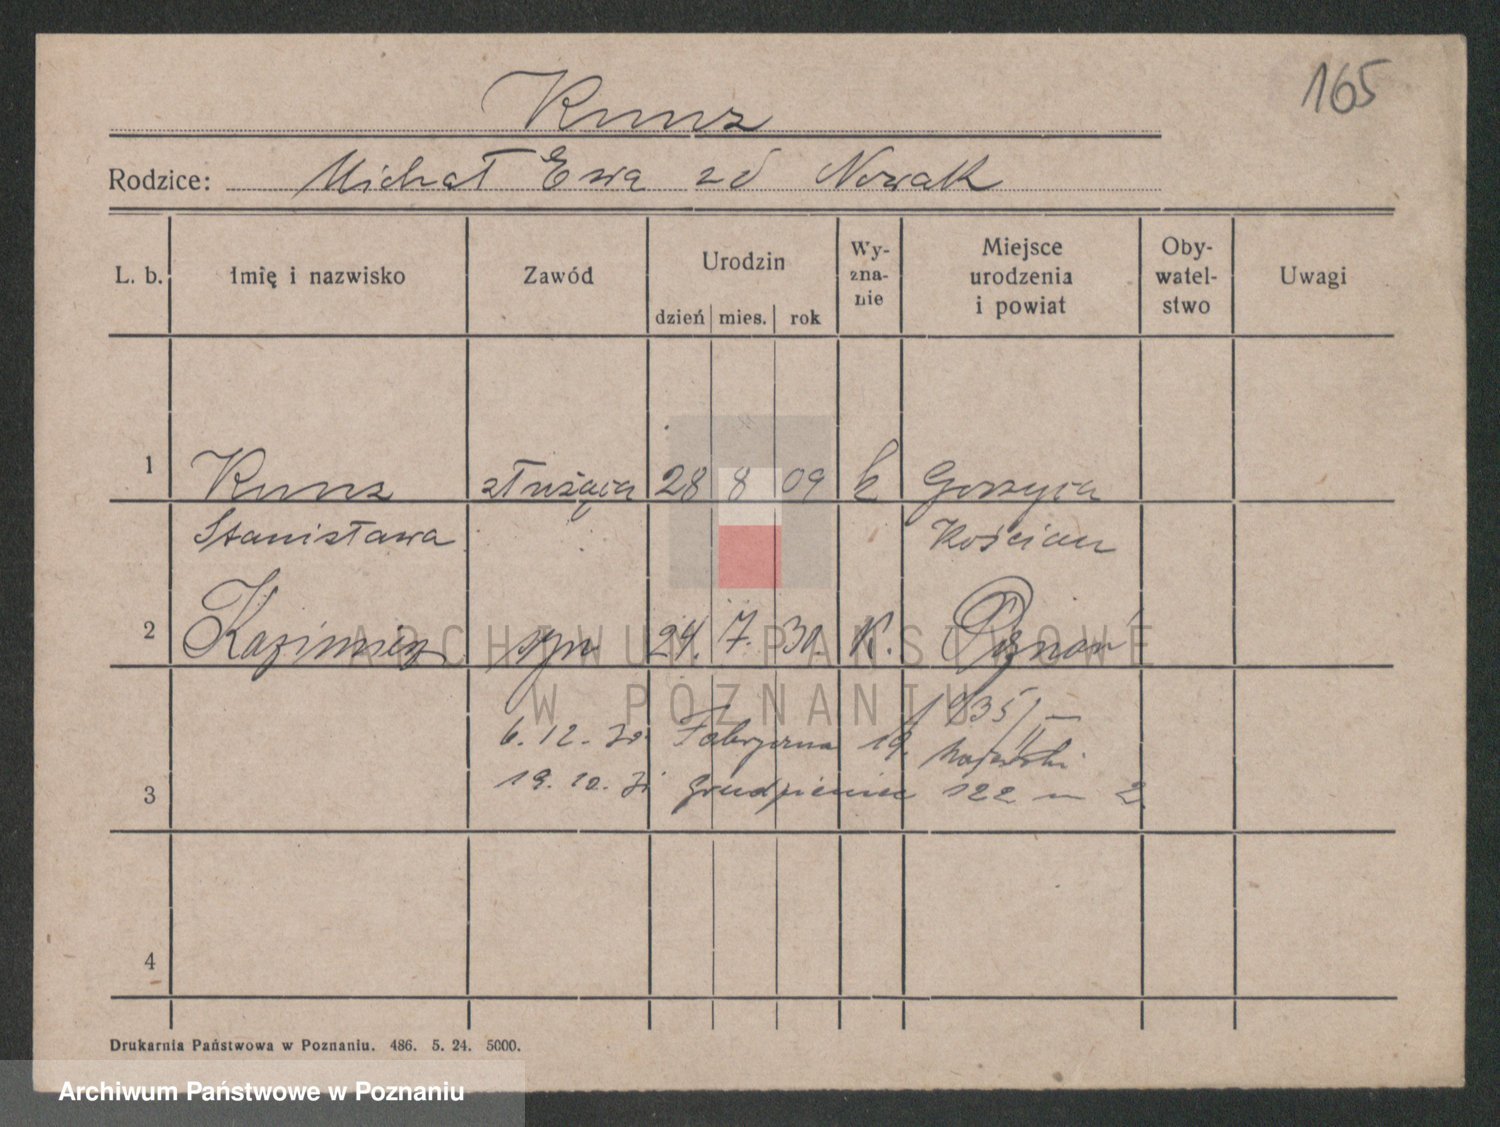 165
Kunz
Rodzice: Michał Ewa zd Nowak
L. b. Imię i nazwisko Zawód Urodzin dzień mies. rok Wy-zna-nie Miejsce urodzenia i powiat Oby-watel-stwo Uwagi
1 Kunz służąca 28 8 09 k Gorzyca
Stanisława Kościan
2 Kazimierz syn 24. 7. 30. K. Poznań
ARCHIWUM PAŃSTWOWE
W POZNANIU
1935/-
6. 12. 30 Fabryczna 19.
3 19. 10. 31 Grudzieniec 122 m 2
4
Drukarnia Państwowa w Poznaniu. 486. 5. 24. 5000.
Archiwum Państwowe w Poznaniu